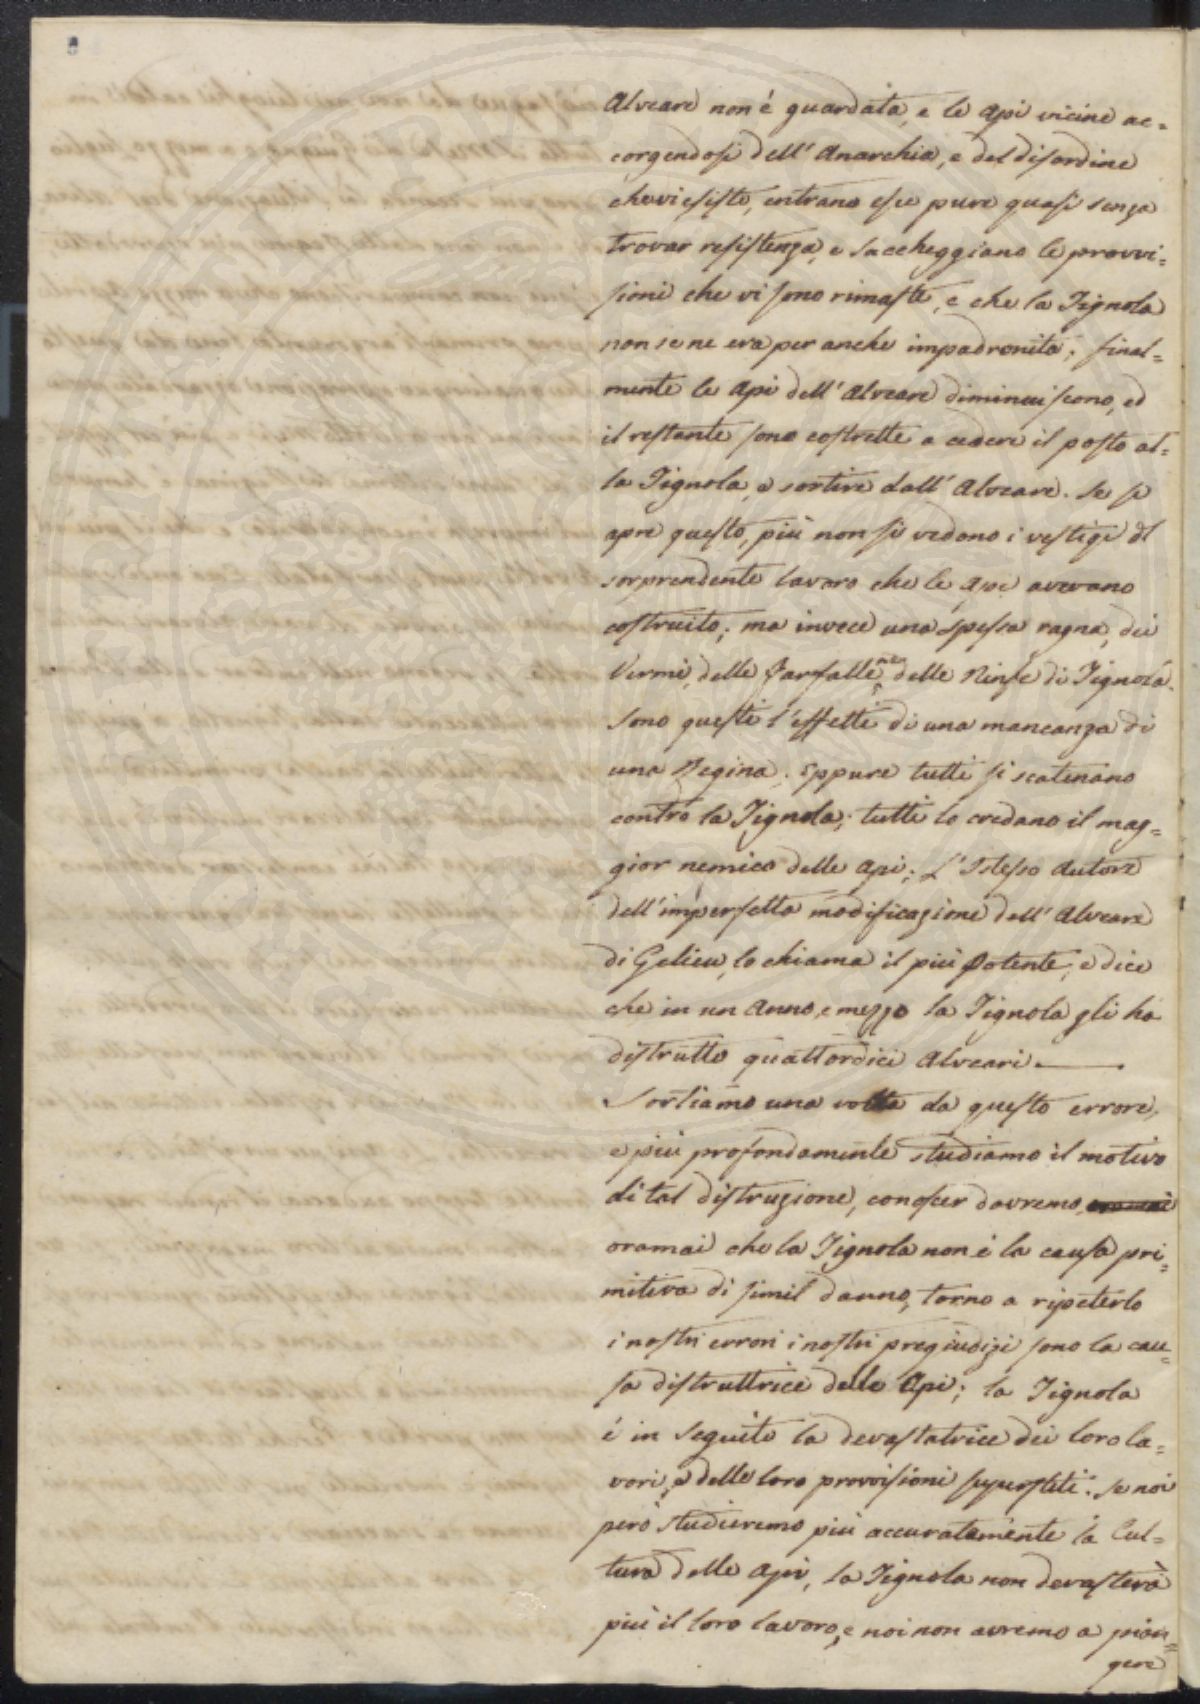 Alveare non é guardata, e le Api vicine ac=
corgendosi dell' Anarchia, e del disordine
che vi esiste, entrano esse pure quasi senza
trovar resistenza, e saccheggiano le provvi=
sioni che vi sono rimaste, e che la Tignola
non se ne era per anche impadronita; final=
mente le Api dell' Alveare diminuiscono, ed
il restante sono costrette a cedere il posto al=
la Tignola, e sortire dall' Alveare. Se si
apre questo, più non si vedono i vestigi del
sorprendente lavoro che le Api avevano
costruito; ma invece una spessa ragna, dei
Vermi, delle Farfalle, delle Ninfe di Tignola.
Sono questi l'effetti di una mancanza di
una Regina. Eppure tutti si scatenano
contro la Tignola; tutti lo credano il mag=
gior nemico delle Api; L'Istesso Autore
dell'imperfetta modificazione dell' Alveare
di Gelieu, lo chiama il più potente, e dice
che in un Anno, e mezzo la Tignola gli ha
distrutto quattordici Alveari.
Sortiamo una volta da questo errore,
e più profondamente studiamo il motivo
di tal distruzione, conoscer dovremo, oramai
oramai che la Tignola non é la causa pri=
mitiva di simil danno, torno a ripeterlo
i nostri errori i nostri pregiudizi sono la cau=
sa distruttrice delle Api; la Tignola
é in seguito la devastatrice dei loro la=
vori, e delle loro provvisioni superstiti. Se noi
però studieremo più accuratamente la Cul=
tura delle Api, la Tignola non devasterà
più il loro lavoro, e noi non avremo a pian=
gere